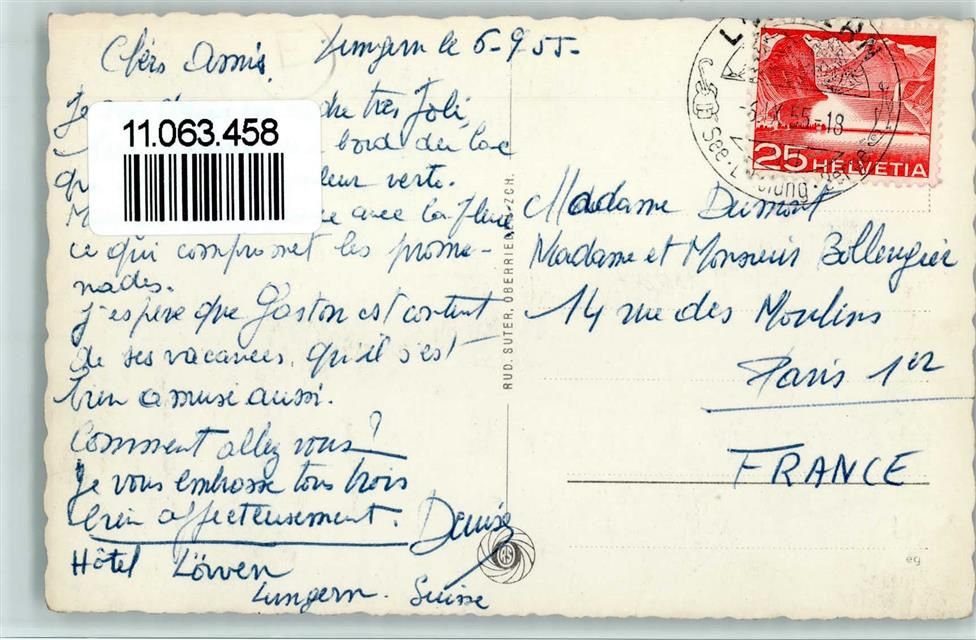 Lungern le 6-9.55-
Chers Amis,
très Joli,
bord du lac
verte.
avec la pluie
ce qui compromet les prome-
nades.
J'espère que Gaston est content
de ses vacances, qu'il s'est
bien amusé aussi.
Comment allez vous?
Je vous embrasse tous trois
bien affectueusement. Denise
Hôtel Löwen
Lungern. Suisse
11.063.458
RUD. SUTER, OBERRIEDEN-ZCH.
LUNGERN
55-18
25 HELVETIA
Madame Dumont
Madame et Monsieur Bollengier
14 rue des Moulins
Paris 1er
FRANCE
eg